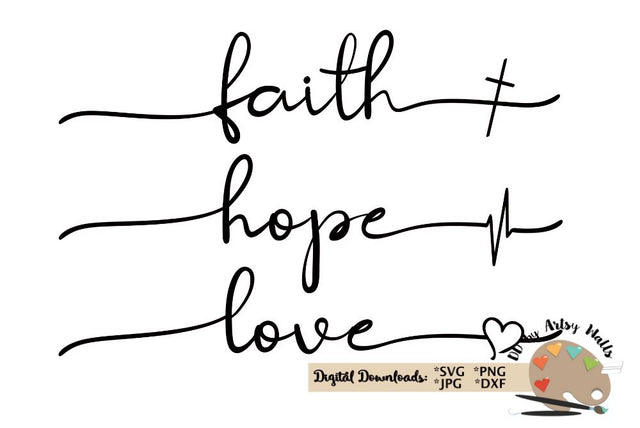 faith
hope
love
Digital Downloads: *SVG *PNG
*JPG *DXF
DD by Artsy Walls